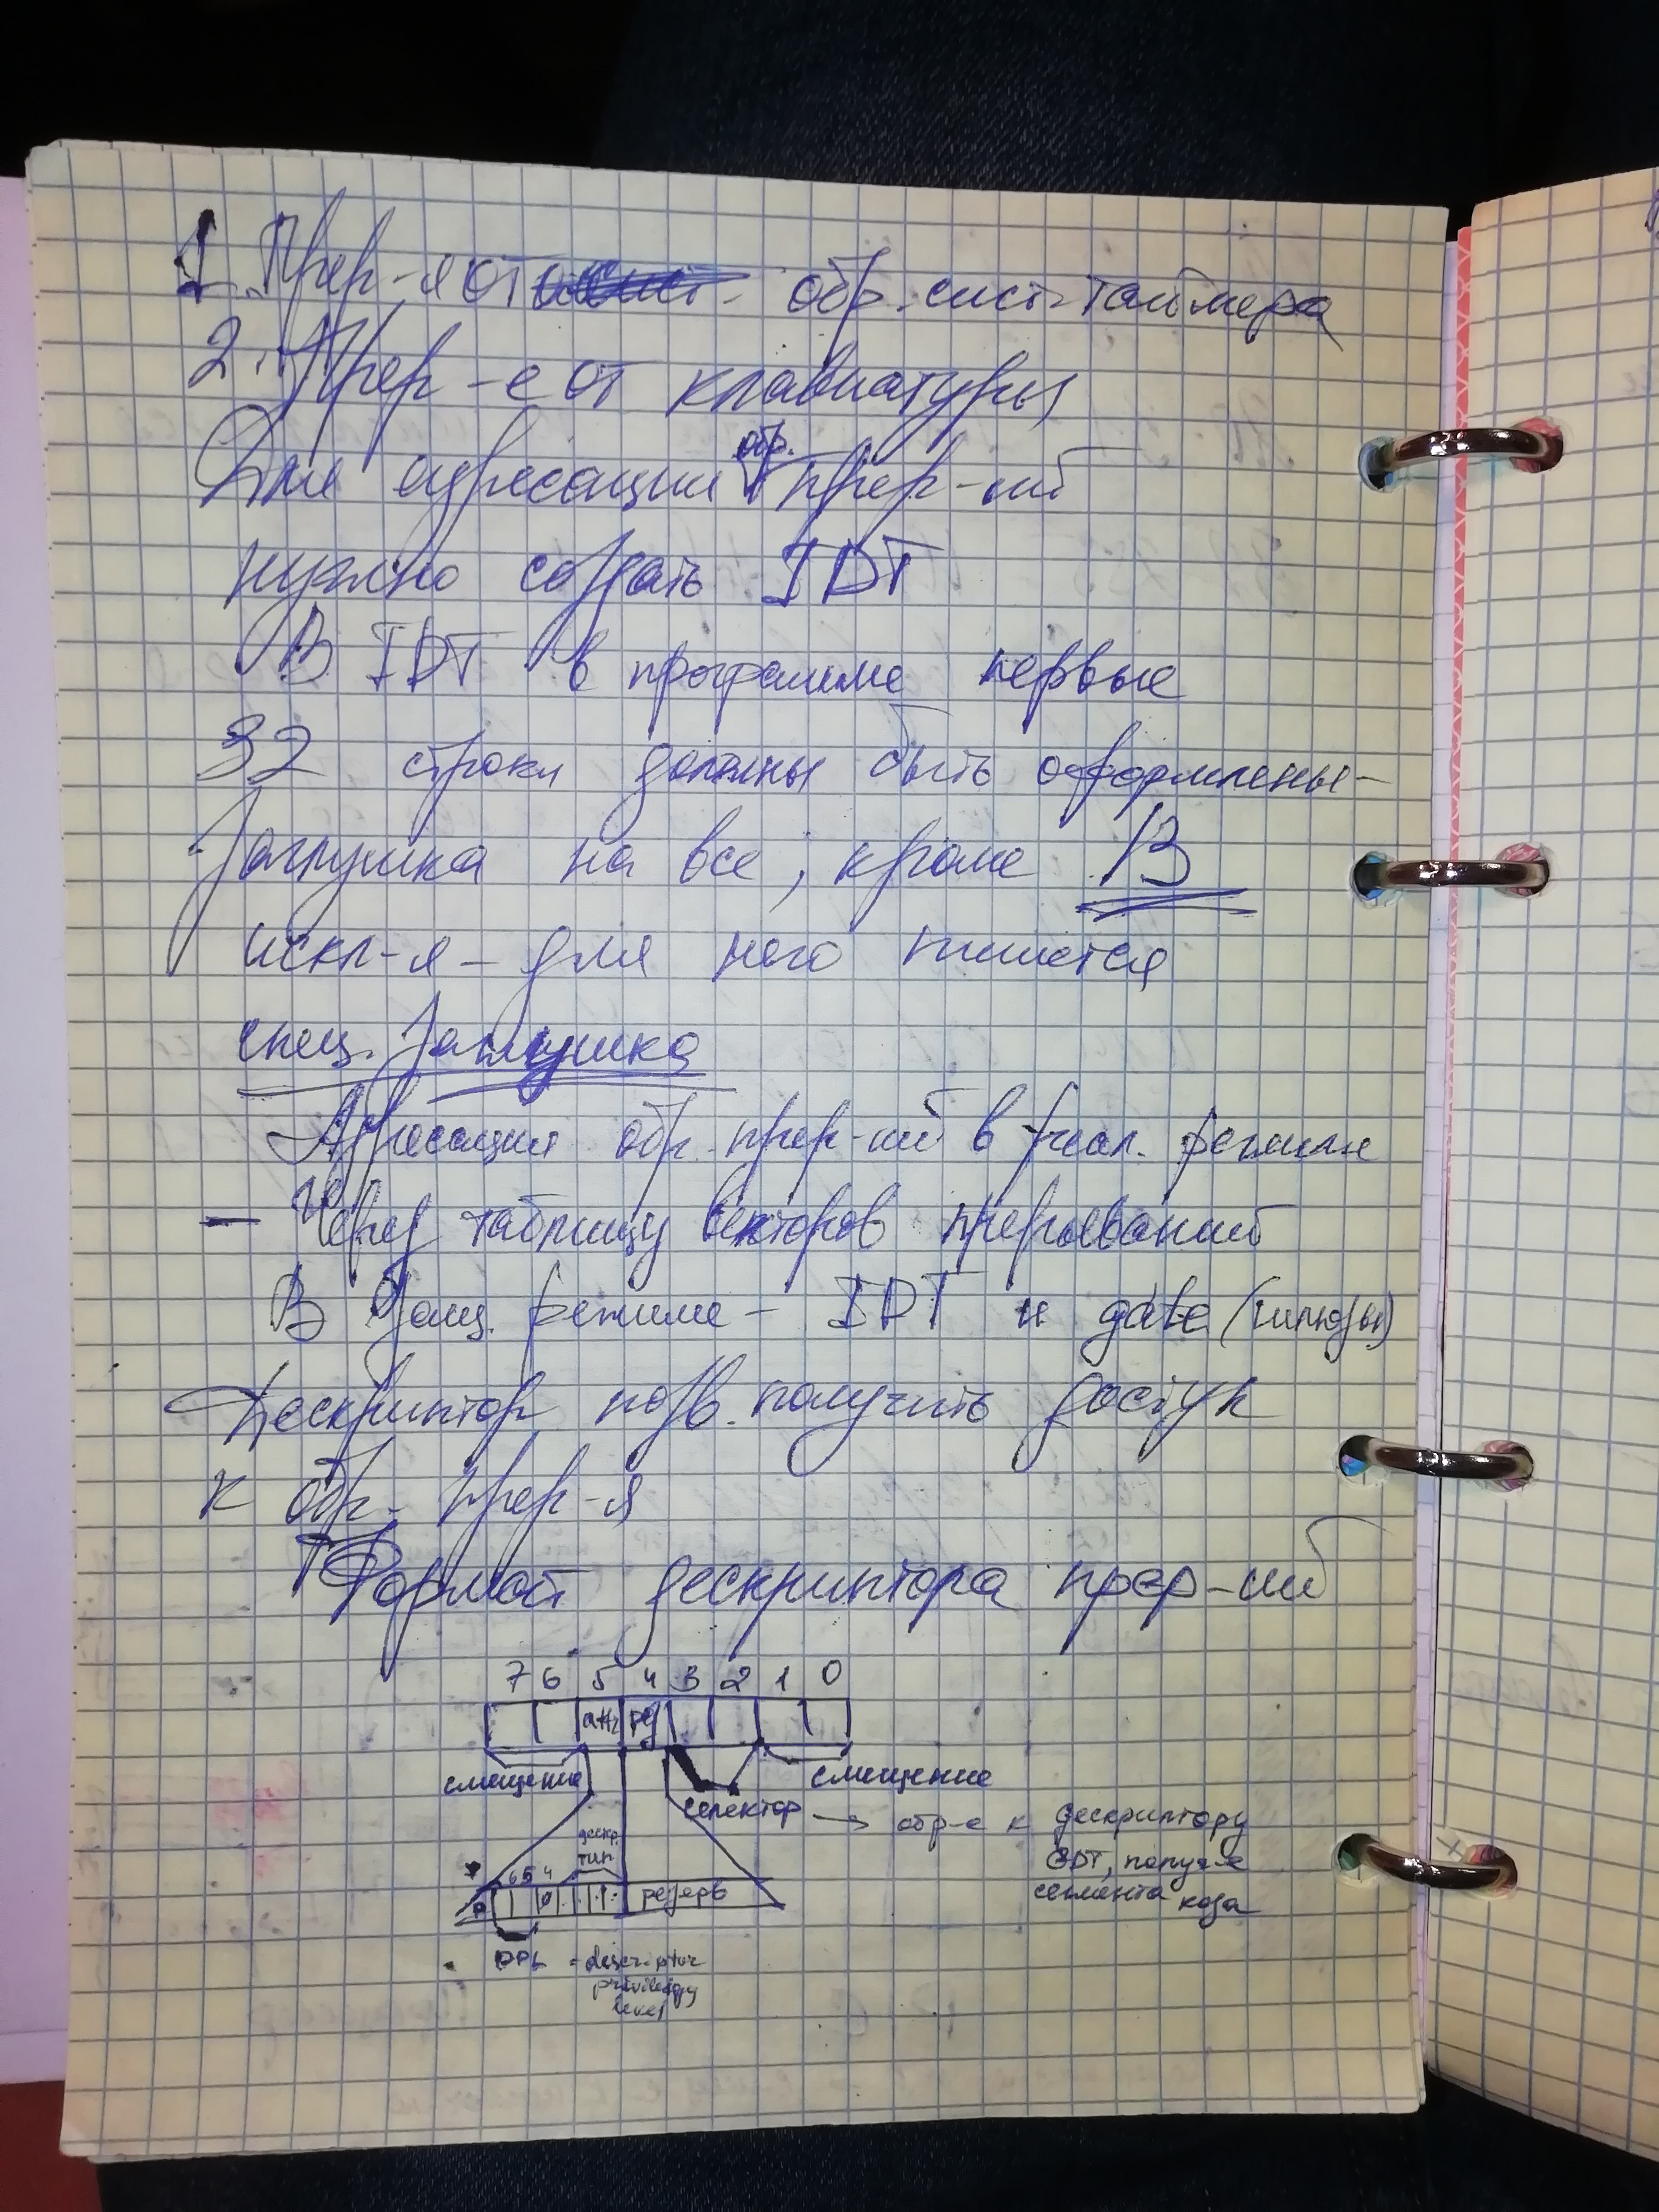 1. Прер-я от обр. сист. таймера
2. Прер-е от клавиатуры
Для адресации обр. прер-ий
нужно создать IDT
В IDT в программе первые
32 строки должны быть оформлены -
заглушка на все, кроме 13
искл-я - для него пишется
спец. заглушка
Адресация обр. прер-ий в реал. режиме
- Через таблицу векторов прерываний
В защ. режиме - IDT и gate (шлюзы)
Дескриптор позв. получить доступ
к обр. прер-я
Формат дескриптора прер-ий
7 6 5 4 3 2 1 0
атт рез
смещение смещение
селектор → обр-е к дескриптору
GDT, получ-е
сегмента кода
дескр.
тип
6 5 4
P 0 резерв
DPL - descriptor
privilegy
level